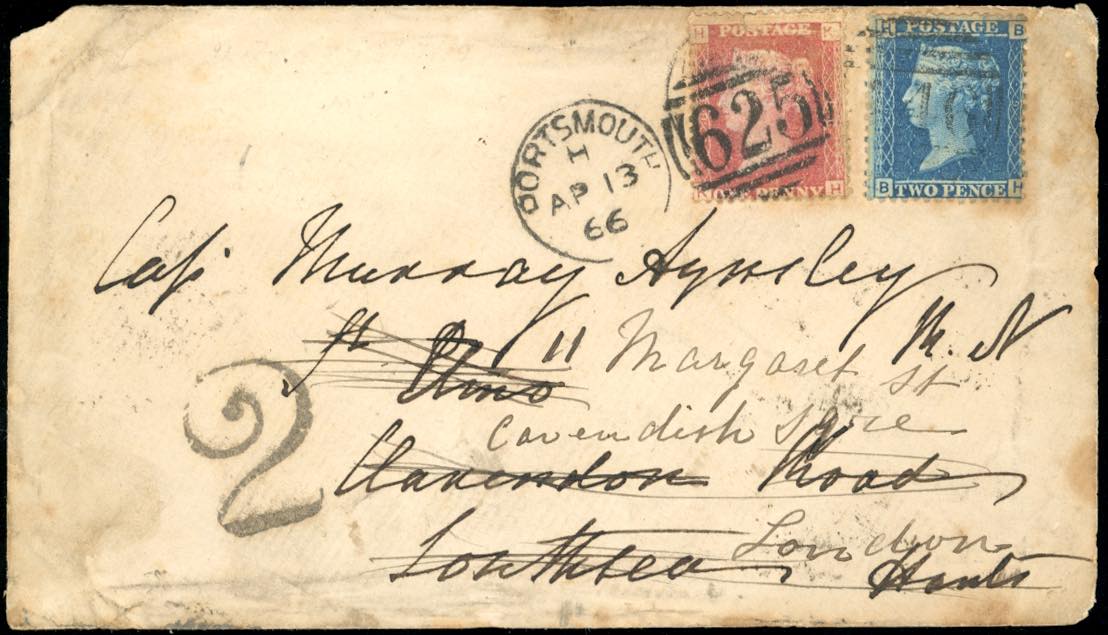 H POSTAGE K
K ONE PENNY H
H POSTAGE B
B TWO PENCE H
PORTSMOUTH
I
AP 13
66
625
Cap Murray Aynsley
R. N
St Elmo
11 Margaret St
Cavendish Sqre
Clarendon Road
Southsea
London
Hants
2